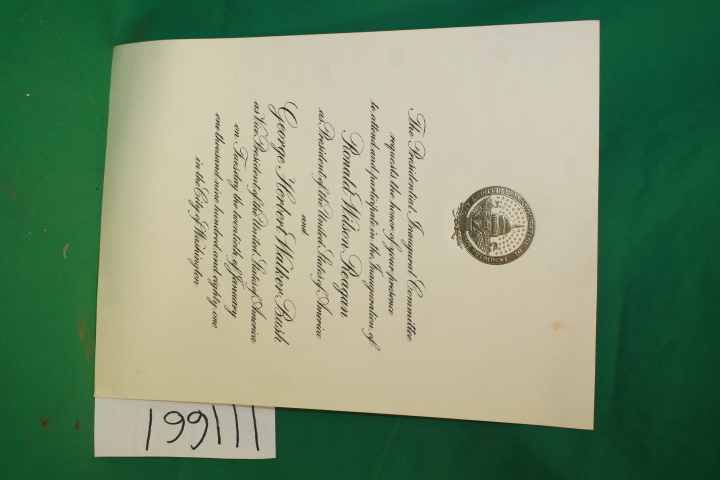 The Presidential Inaugural Committee
requests the honor of your presence
to attend and participate in the Inauguration of
Ronald Wilson Reagan
as President of the United States of America
and
George Herbert Walker Bush
as Vice President of the United States of America
on Tuesday the twentieth of January
one thousand nine hundred and eighty one
in the City of Washington
199111